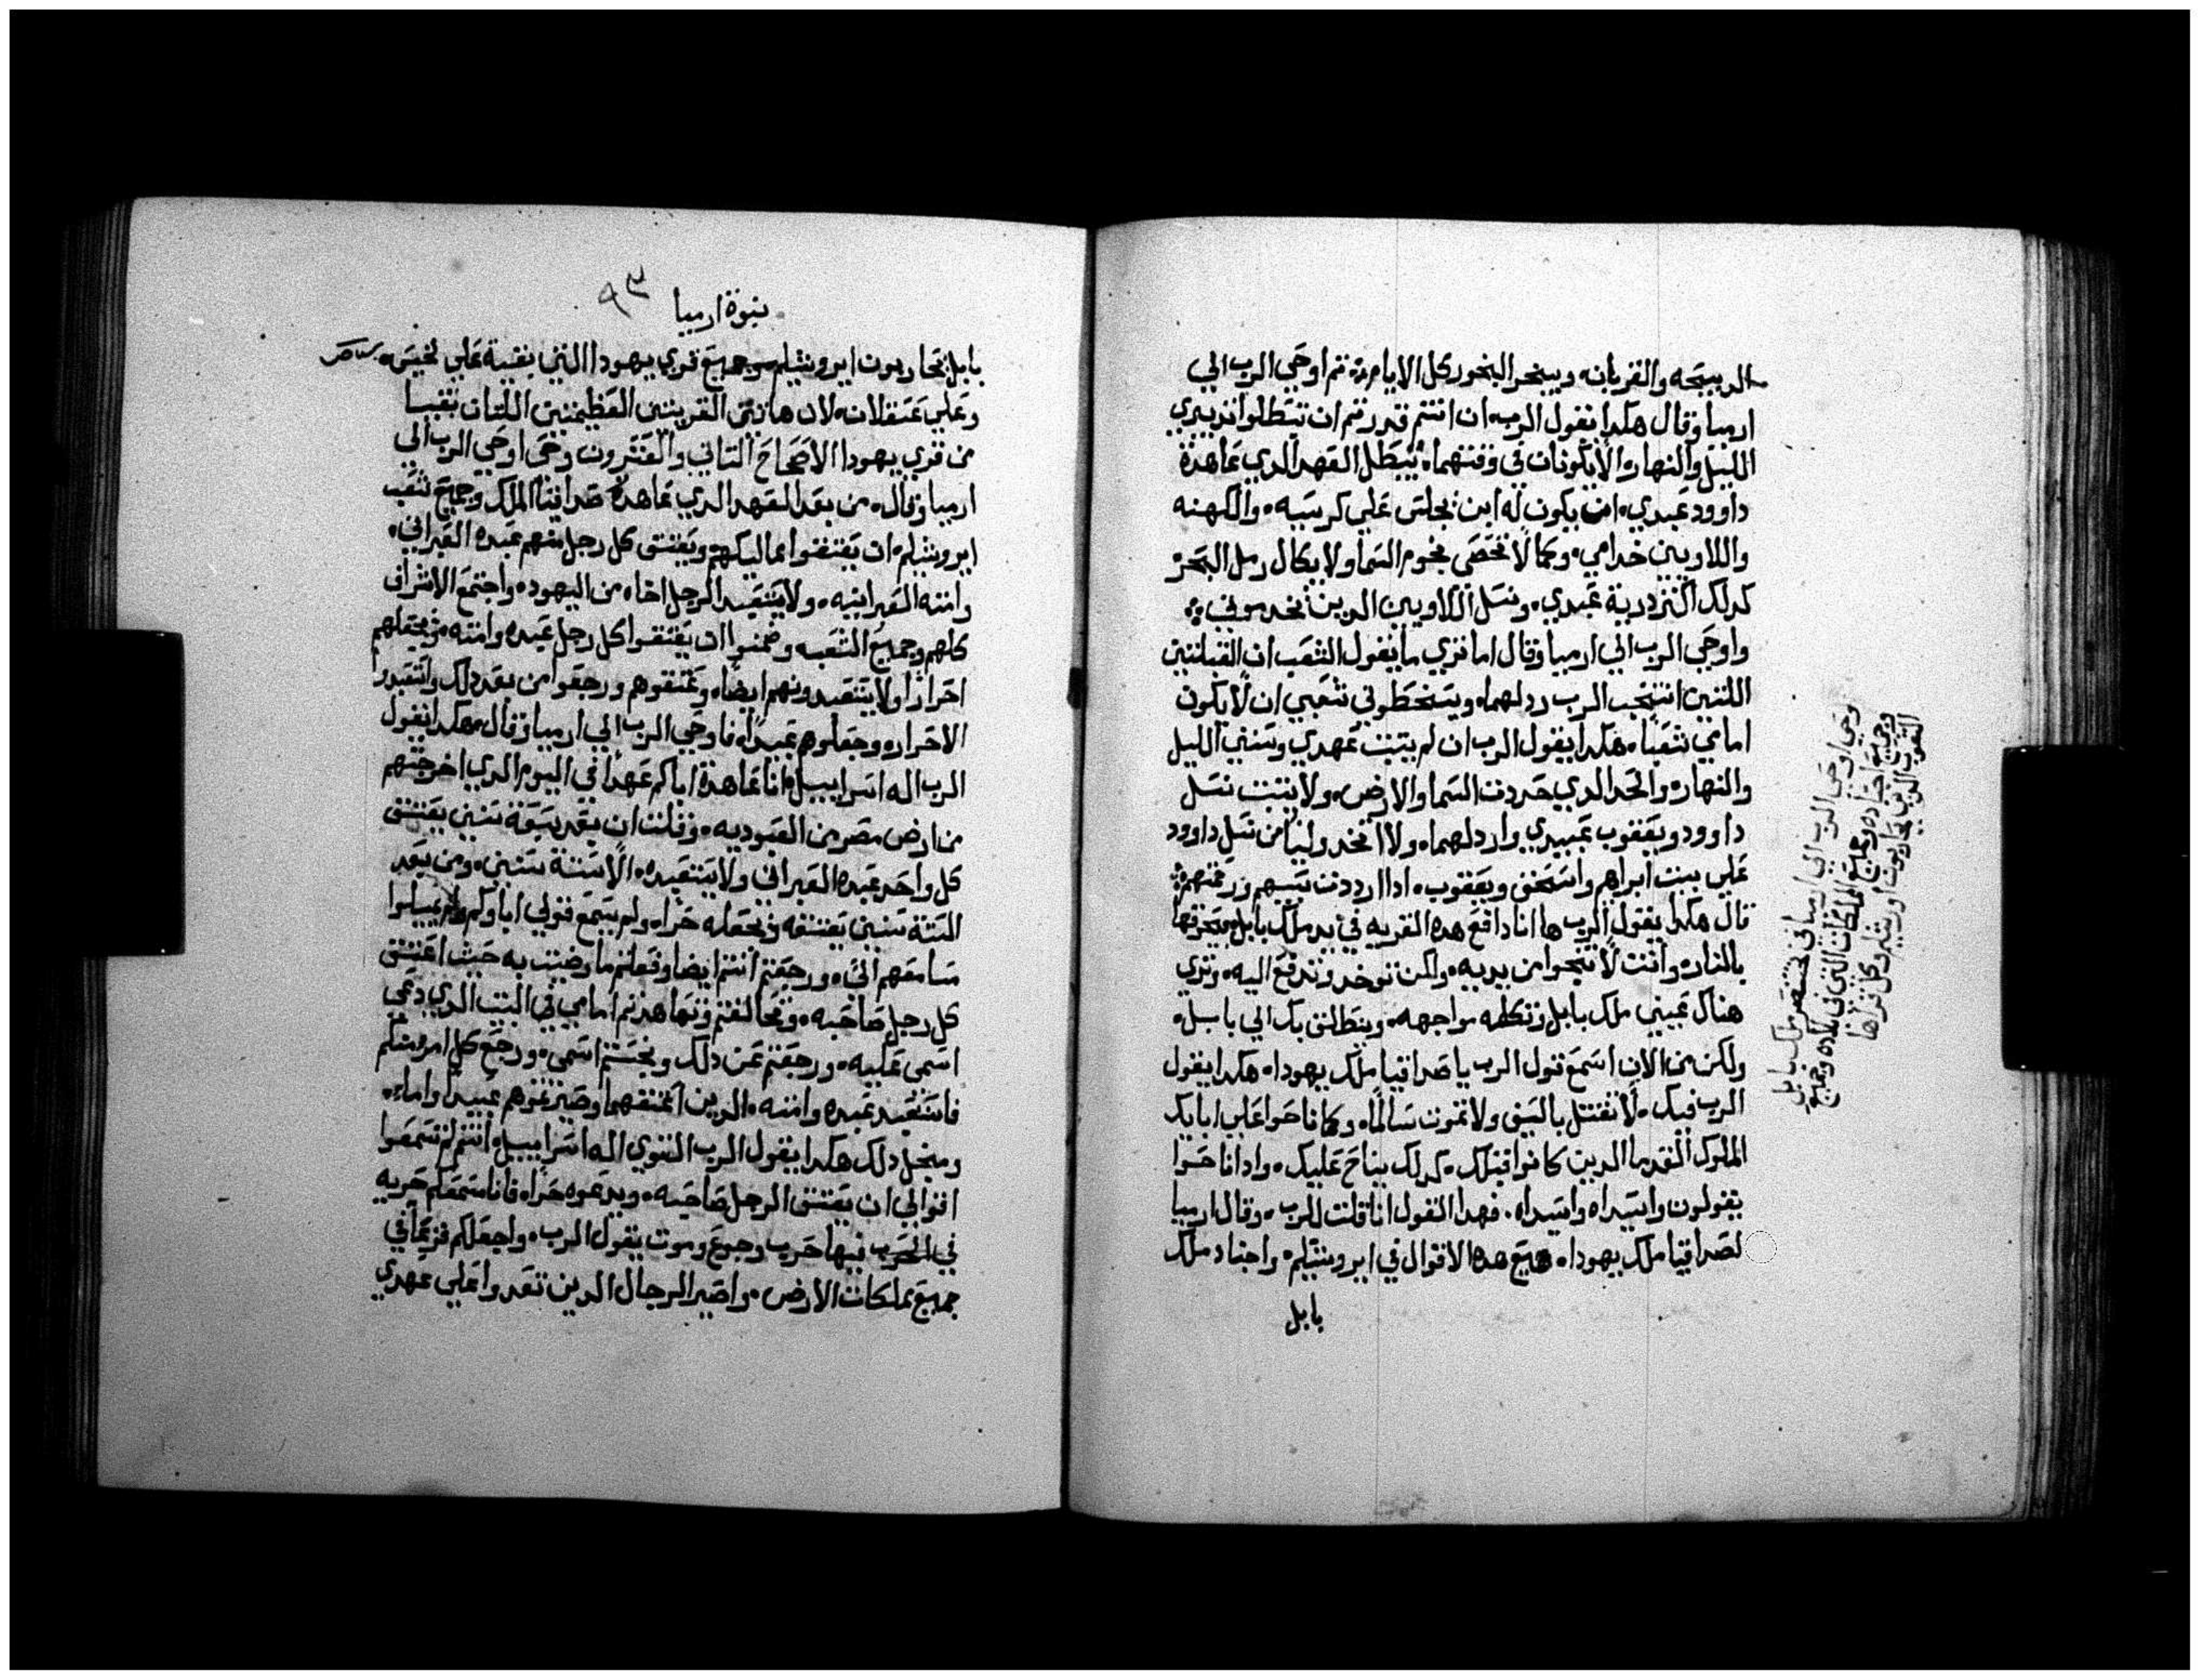 الدبيحه والقربان، ويبخر البخور كل الايام، تم اوحي الرب الي
ارميا وقال هكدا يقول الرب، ان انتم قدرتم ان تبطلوا تدبيري
الليل والنهار، الا يكونان في وقتهما، يبطل العهد الدي عاهدة
داوود عبدي، ان يكون له ابن يجلس علي كرسيه، والكهنه
واللاويين خدامي، وكما لا تحصي نجوم السما ولا يكال رمل البحر
كدلك اكتر درية عبدي، ونسل اللاويين الدين يخدموني
واوحي الرب الي ارميا وقال اما تري ما يقول الشعب ان القبيلتين
اللتين انتجب الرب ردلهما، ويسخطوني شعبي ان لا يكون
امامي شعبا، هكدا يقول الرب ان لم يتبت عهدي وسنني الليل
والنهار، والحد الدي حددت السما والارض، ولا يتبت نسل
داوود ويعقوب عبيدي واردلهما، ولا اتخد وليا من نسل داوود
علي بيت ابراهم واسحق ويعقوب، ادا رددت سبيهم ورحمتهم
قال هكدا يقول الرب ها انا دافع هده القريه في يد ملك بابل ويحرقها
بالنار، وانت لا تنجوا من يديه، ولكن توخد وتدفع اليه، وتري
هناك عيني ملك بابل وتكلمه مواجهه، وينطلق بك الي بابل،
ولكن من الان اسمع قول الرب يا صداقيا ملك يهودا، هكدا يقول
الرب فيك، لا تقتل بالسيف ولا تموت سالما، وكما ناحوا علي ابايك
الملوك القدما الدين كانوا قبلك، كدلك يناح عليك، وادا ناحوا
يقولون واسيداه واسيداه، فهدا القول انا قلت للرب، وقال ارميا
لصداقيا ملك يهودا، جميع هده الاقوال في ايروشليم، واجناد ملك
بابل
وحي اوحي الرب الي ارميا في بختنصر ملك بابل
وجميع اجناده وجميع المملكات التي في بلاده وجميع
الشعوب الدين يحاربون اورشليم وكل قراها
نبوة ارميا
٩٣
بابل يحاربون ايروشليم وجميع قري يهودا التي بقية علي لخيس،
وعلي عتقلان، لان هاتين القريتين العظيمتين اللتان بقيا
من قري يهودا الاصحاح التاني والعشرون وحي اوحي الرب الي
ارميا وقال، من بعد العهد الدي عاهده صداقيا الملك وجميع شعب
ايروشليم، ان يعتقوا مماليكهم ويعتق كل رجل منهم عبده العبراني،
وامته العبرانيه، ولا يستعبد الرجل اخاه من اليهود، واجتمع الاشراف
كلهم وجميع الشعب، وضمنوا ان يعتقوا كل رجل عبده وامته، ويجعلهم
احرارا ولا يستعبدونهم ايضا، وعتقوهم ورجعوا من بعد دلك واستعبدوا
الاحرار، وجعلوهم عبيدا، فاوحي الرب الي ارميا وقال، هكدا يقول
الرب اله اسراييل، انا عاهدة اباكم عهدا في اليوم الدي اخرجتهم
من ارض مصر من العبوديه، وقلت ان بعد سبعة سنين يعتق
كل واحد عبده العبراني ولا يستعبده، الا ستة سنين، ومن بعد
الستة سنين يعتقه ويجعله حرا، ولم يسمع قولي اباوكم ولم يميلوا
مسامعهم الي، ورجعتم انتم ايضا وفعلتم ما رضيت به حيث اعتق
كل رجل صاحبه، وتحالفتم وتعاهدتم امامي في البيت الدي دعي
اسمي عليه، ورجعتم عن دلك ونجستم اسمي، ورجع كل امر منكم
فاستعبد عبده وامته، الدين اعتقتهما وصيرتموهم عبيدا واماء،
ومن اجل دلك هكدا يقول الرب القوي اله اسراييل، انتم لم تسمعوا
اقوالي ان يعتق الرجل صاحبه، ويدعوه حرا، فانا سمعكم حريه
في الحرب فيها حرب وجوع وموت يقول الرب، واجعلكم فزعا في
جميع مملكات الارض، واصير الرجال الدين تعدوا علي عهدي